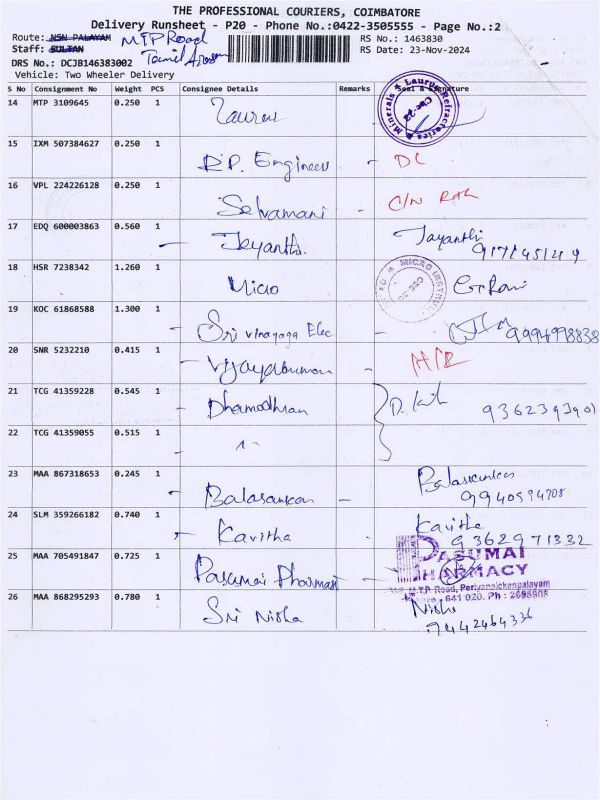 THE PROFESSIONAL COURIERS, COIMBATORE
Delivery Runsheet - P20 - Phone No.:0422-3505555 - Page No.:2
Route: NSN PALAYAM MTP Road
RS No.: 1463830
Staff: SULTAN Tamil
RS Date: 23-Nov-2024
DRS No.: DCJB146383002
Vehicle: Two Wheeler Delivery
S No Consignment No Weight PCS Consignee Details Remarks Seal & Signature
14 MTP 3109645 0.250 1 Laurus Minerals & Laurus Refractories Cbe-22
15 IXM 507384627 0.250 1 R.P. Engineers - DC
16 VPL 224226128 0.250 1 Selvamani - C/N
17 EDQ 600003863 0.560 1 - Jayanthi Jayanthi
18 HSR 7238342 1.260 1 Micro MICRO
19 KOC 61868588 1.300 1 - Sri Vinayaga Elec - 9994998838
20 SNR 5232210 0.415 1 - Vijayakumar -
21 TCG 41359228 0.545 1 - Dhamodharan
22 TCG 41359055 0.515 1 - 〃 -
23 MAA 867318653 0.245 1 - Balasankar - Balasankar
24 SLM 359266182 0.740 1 - Kavitha - Kavitha
9362971332
25 MAA 705491847 0.725 1 Pasumai Pharmacy - PASUMAI
PHARMACY
M.T.P. Road, Periyanaickenpalayam
641 020. Ph : 2695908
26 MAA 868295293 0.780 1 Sri Nisha Nisha
9442464336